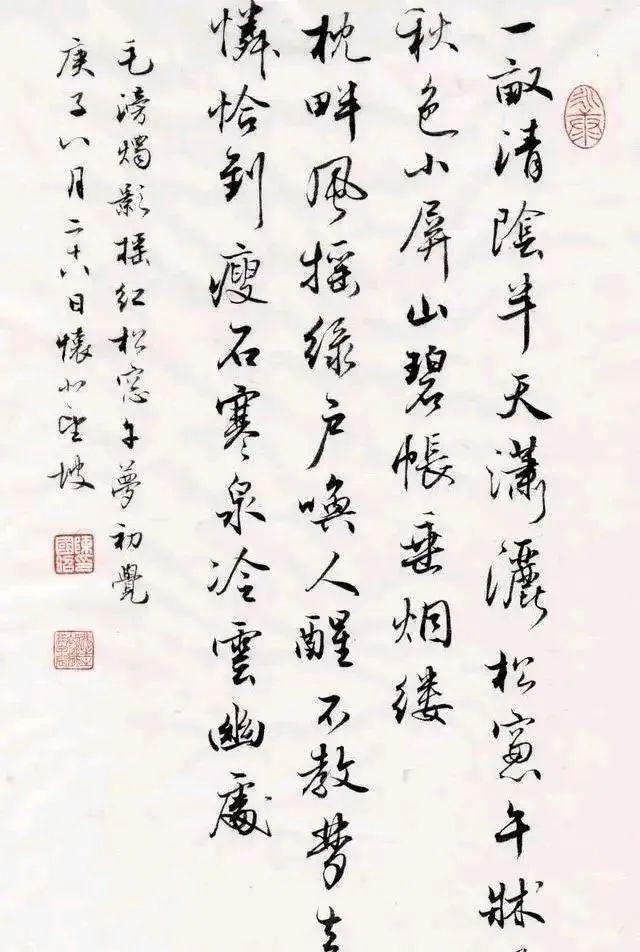 一畝清陰半天瀟灑松窻午牀
秋色小屏山碧帳垂烟缕
枕畔風摇綠户喚人醒不教梦去
憐恰到瘦石寒泉冷雲幽處
毛滂燭影摇红松窓午夢初覺
庚子八月二十八日懷 坡